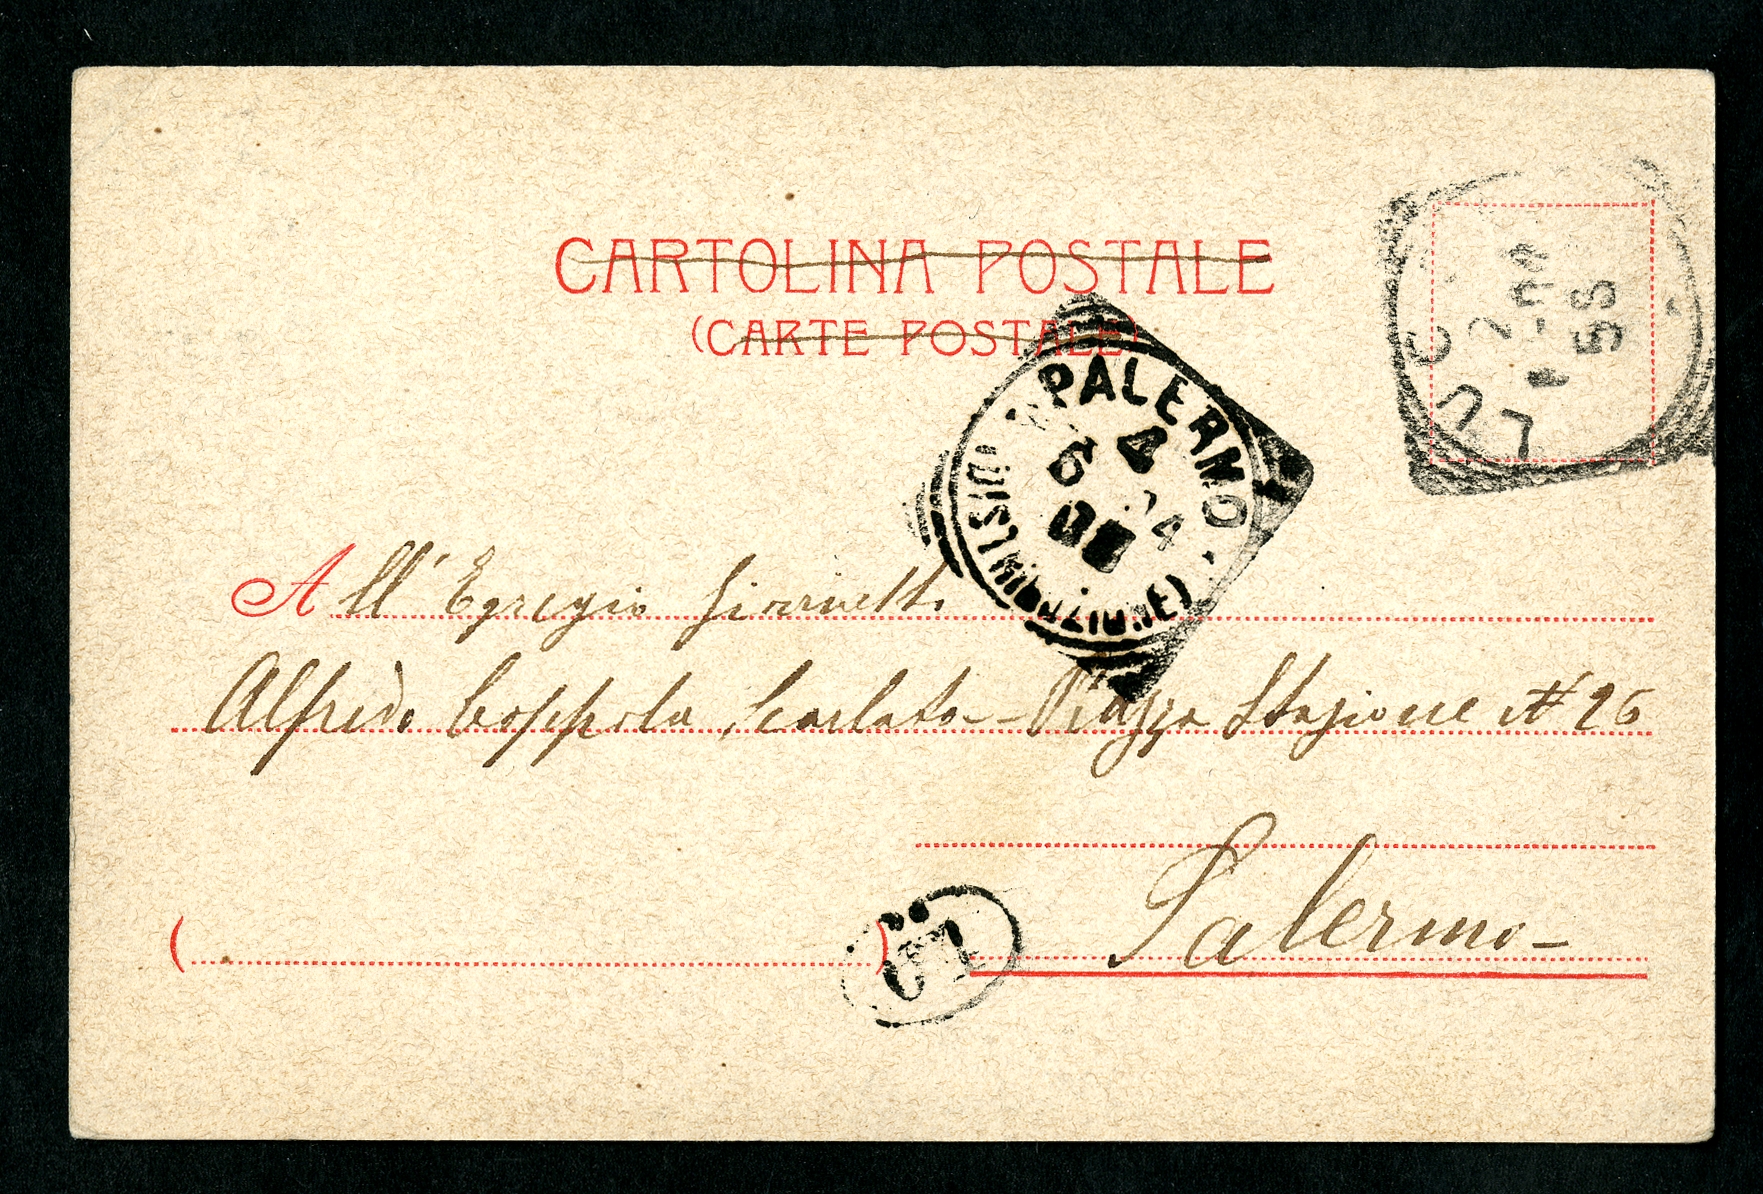 CARTOLINA POSTALE
(CARTE POSTALE)
PALERMO
(DISTRIBUZIONE)
4
6
All' Egregio Giovinetto
Alfredo Coppola Scarlata - Piazza Stazione N° 26
Palermo -
( )